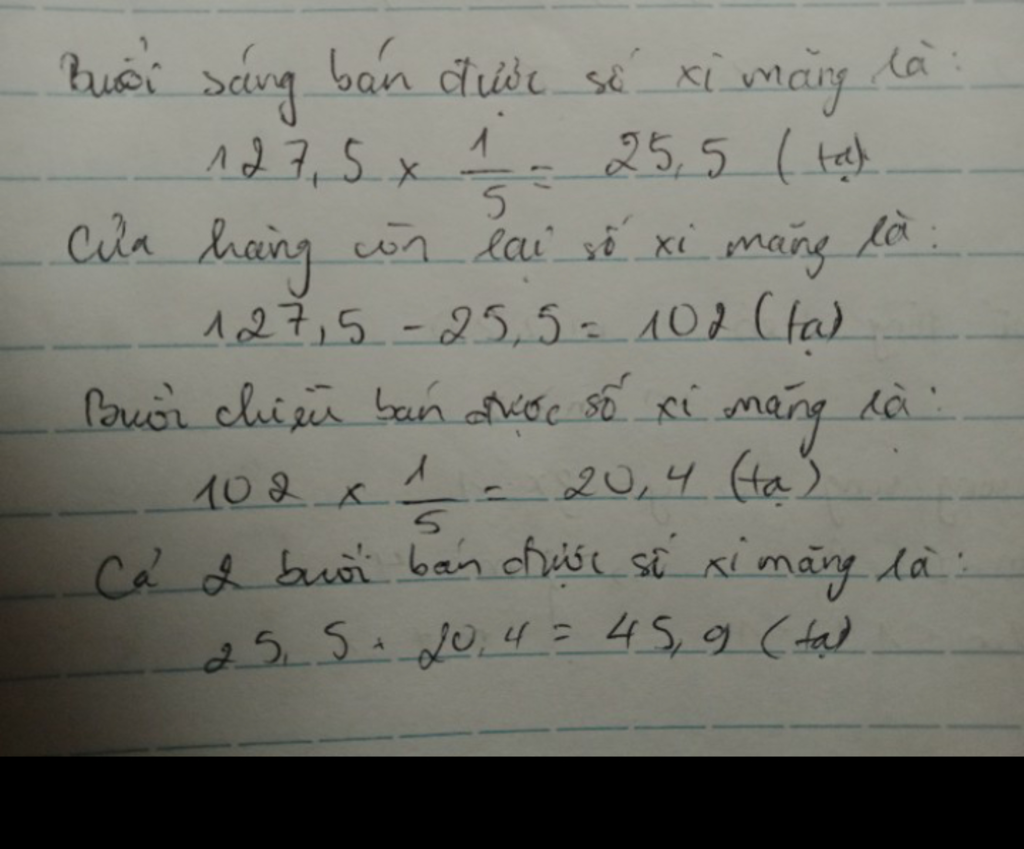 Buổi sáng bán được số xi măng là:
127,5 × 1/5 = 25,5 (tạ)
Cửa hàng còn lại số xi măng là:
127,5 - 25,5 = 102 (tạ)
Buổi chiều bán được số xi măng là:
102 × 1/5 = 20,4 (tạ)
Cả 2 buổi bán được số xi măng là:
25,5 + 20,4 = 45,9 (tạ)